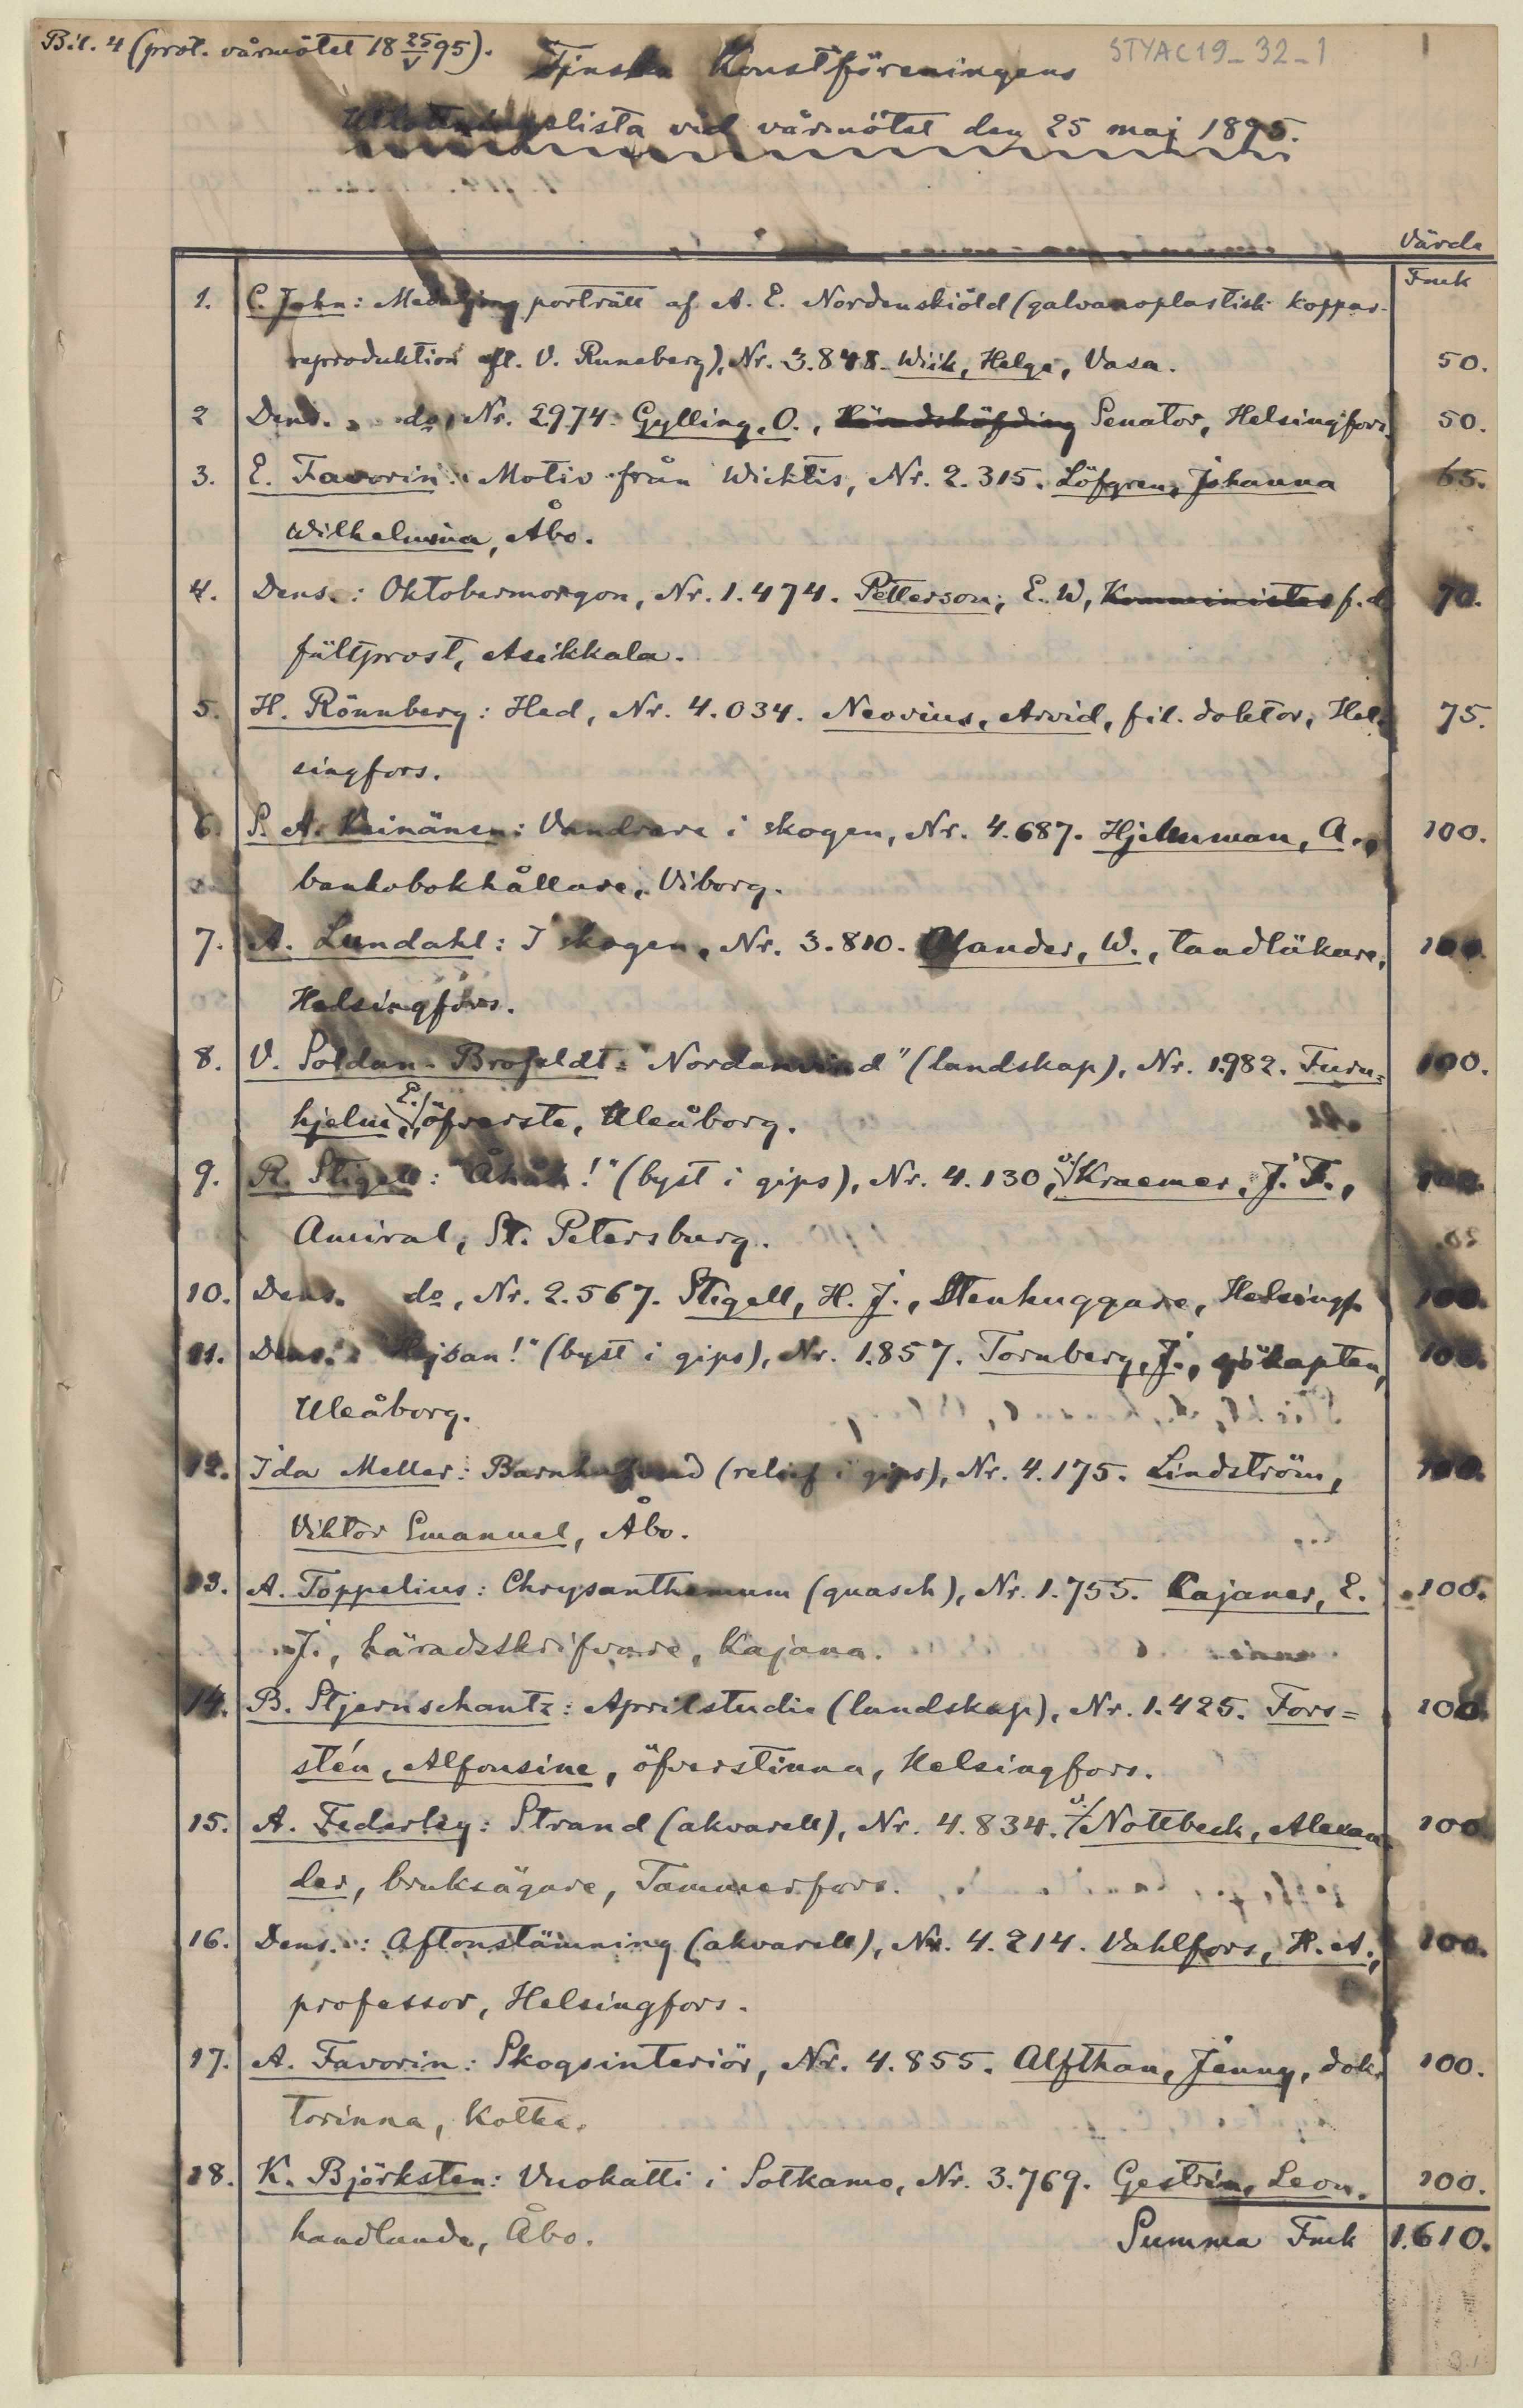 Bil. 4 (prot. vårmötet 18 25/V 95).
STYAC19_32_1
1
Finska Konstföreningens
Utlottningslista vid vårmötet den 25 maj 1895.
Värde
Fmk
1. C. Jahn: Medaljongporträtt af A. E. Nordenskiöld (galvanoplastisk koppar-
reproduktion eft. V. Runeberg), Nr. 3.848. Wiik, Helge, Vasa. 50.
2 Dens. do, Nr. 2974. Gylling, O., Häradshöfding Senator, Helsingfors. 50.
3. E. Favorin: Motiv från Wichtis, Nr. 2.315. Löfgren, Johanna 65.
Wilhelmina, Åbo.
4. Dens.: Oktobermorgon, Nr. 1.474. Petterson, E. W, Komminister f. d. 70.
fältprost, Asikkala.
5. H. Rönnberg: Hed, Nr. 4.034. Neovius, Arvid, fil. doktor, Hel- 75.
singfors.
6. S. A. Keinänen: Vandrare i skogen, Nr. 4.687. Hjelmman, A., 100.
bankobokhållare, Viborg.
7. A. Lundahl: I skogen, Nr. 3.810. Olander, W., tandläkare, 100.
Helsingfors.
8. V. Soldan-Brofeldt: "Nordanvind" (landskap), Nr. 1.982. Furu= 100.
hjelm, E., öfverste, Uleåborg.
9. R. Stigell: "Åhåh!" (byst i gips), Nr. 4.130, v. Kraemer, J. F., 100.
Amiral, St. Petersburg.
10. Dens. do, Nr. 2.567. Stigell, H. J., Stenhuggare, Helsingf. 100.
11. Dens.: "Hejsan!" (byst i gips), Nr. 1.857. Tornberg, J., sjökapten, 100.
Uleåborg.
12. Ida Meller: Barnhufvud (relief i gips), Nr. 4.175. Lindström, 100.
Viktor Emanuel, Åbo.
13. A. Toppelius: Chrysanthemum (guasch), Nr. 1.755. Cajaner, E. 100.
J., häradsskrifvare, Kajana.
14. B. Stjernschantz: Aprilstudie (landskap), Nr. 1.425. Fors= 100.
stén, Alfonsine, öfverstinna, Helsingfors.
15. A. Federley: Strand (akvarell), Nr. 4.834. v. Nottbeck, Alexan- 100
der, bruksägare, Tammerfors.
16. Dens.: Aftonstämning (akvarell), Nr. 4.214. Vahlfors, H. A., 100.
professor, Helsingfors.
17. A. Favorin: Skogsinteriör, Nr. 4.855. Alfthan, Jenny, dok- 100.
torinna, Kotka.
18. K. Björksten: Vuokatti i Sotkamo, Nr. 3.769. Gestrin, Leon. 100.
handlande, Åbo. Summa Fmk 1.610.